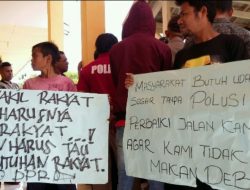 AKIL RAKYAT
HARUSNYA
RAKYAT...!
HARUS TAU
TUHAN RAKYAT.
DPR
POLI
MASYARAKAT BUTUH UD
SEGAR TANPA POLUSI
PERBAIKI JALAN KAM
AGAR KAMI TIDAK
MAKAN DEB